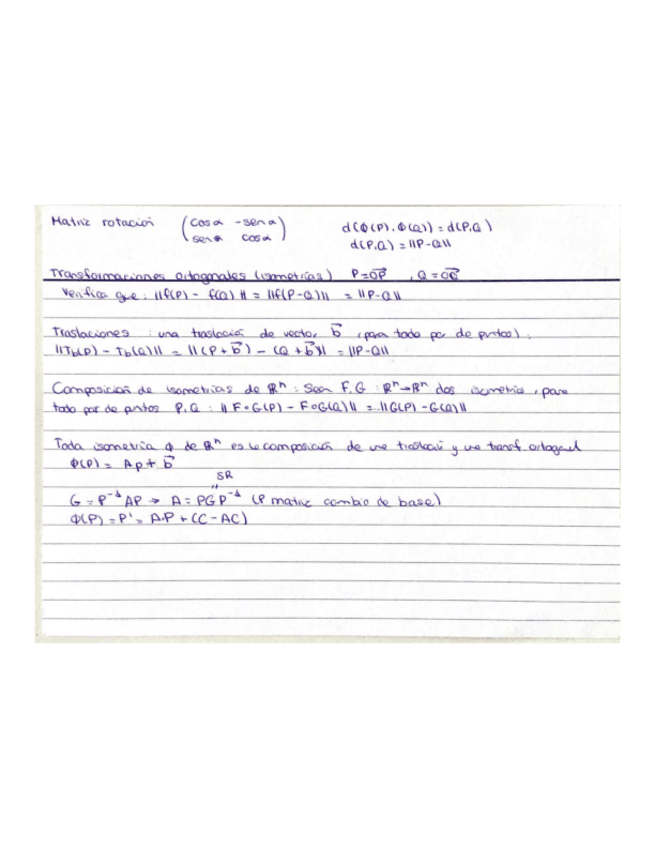 Matriz rotación (cosα -senα
senα cosα) d(Φ(P), Φ(Q)) = d(P,Q)
d(P,Q) = ||P-Q||
Transformaciones ortogonales (isometrías) P=OP⃗ , Q=OQ⃗
Verifica que: ||f(P) - f(Q)|| = ||f(P-Q)|| = ||P-Q||
Traslaciones: una traslación de vector b⃗ (para todo par de puntos):
||Tb(P) - Tb(Q)|| = ||(P+b⃗) - (Q+b⃗)|| = ||P-Q||
Composición de isometrías de ℝⁿ: Sean F,G: ℝⁿ→ℝⁿ dos isometrías, para
todo par de puntos P,Q: ||F∘G(P) - F∘G(Q)|| = ||G(P)-G(Q)||
Toda isometría Φ de ℝⁿ es la composición de una traslación y una transf. ortogonal
Φ(P) = Ap + b⃗
SR
"
G = P⁻¹AP → A = PGP⁻¹ (P matriz cambio de base)
Φ(P) = P' = A·P + (C-AC)